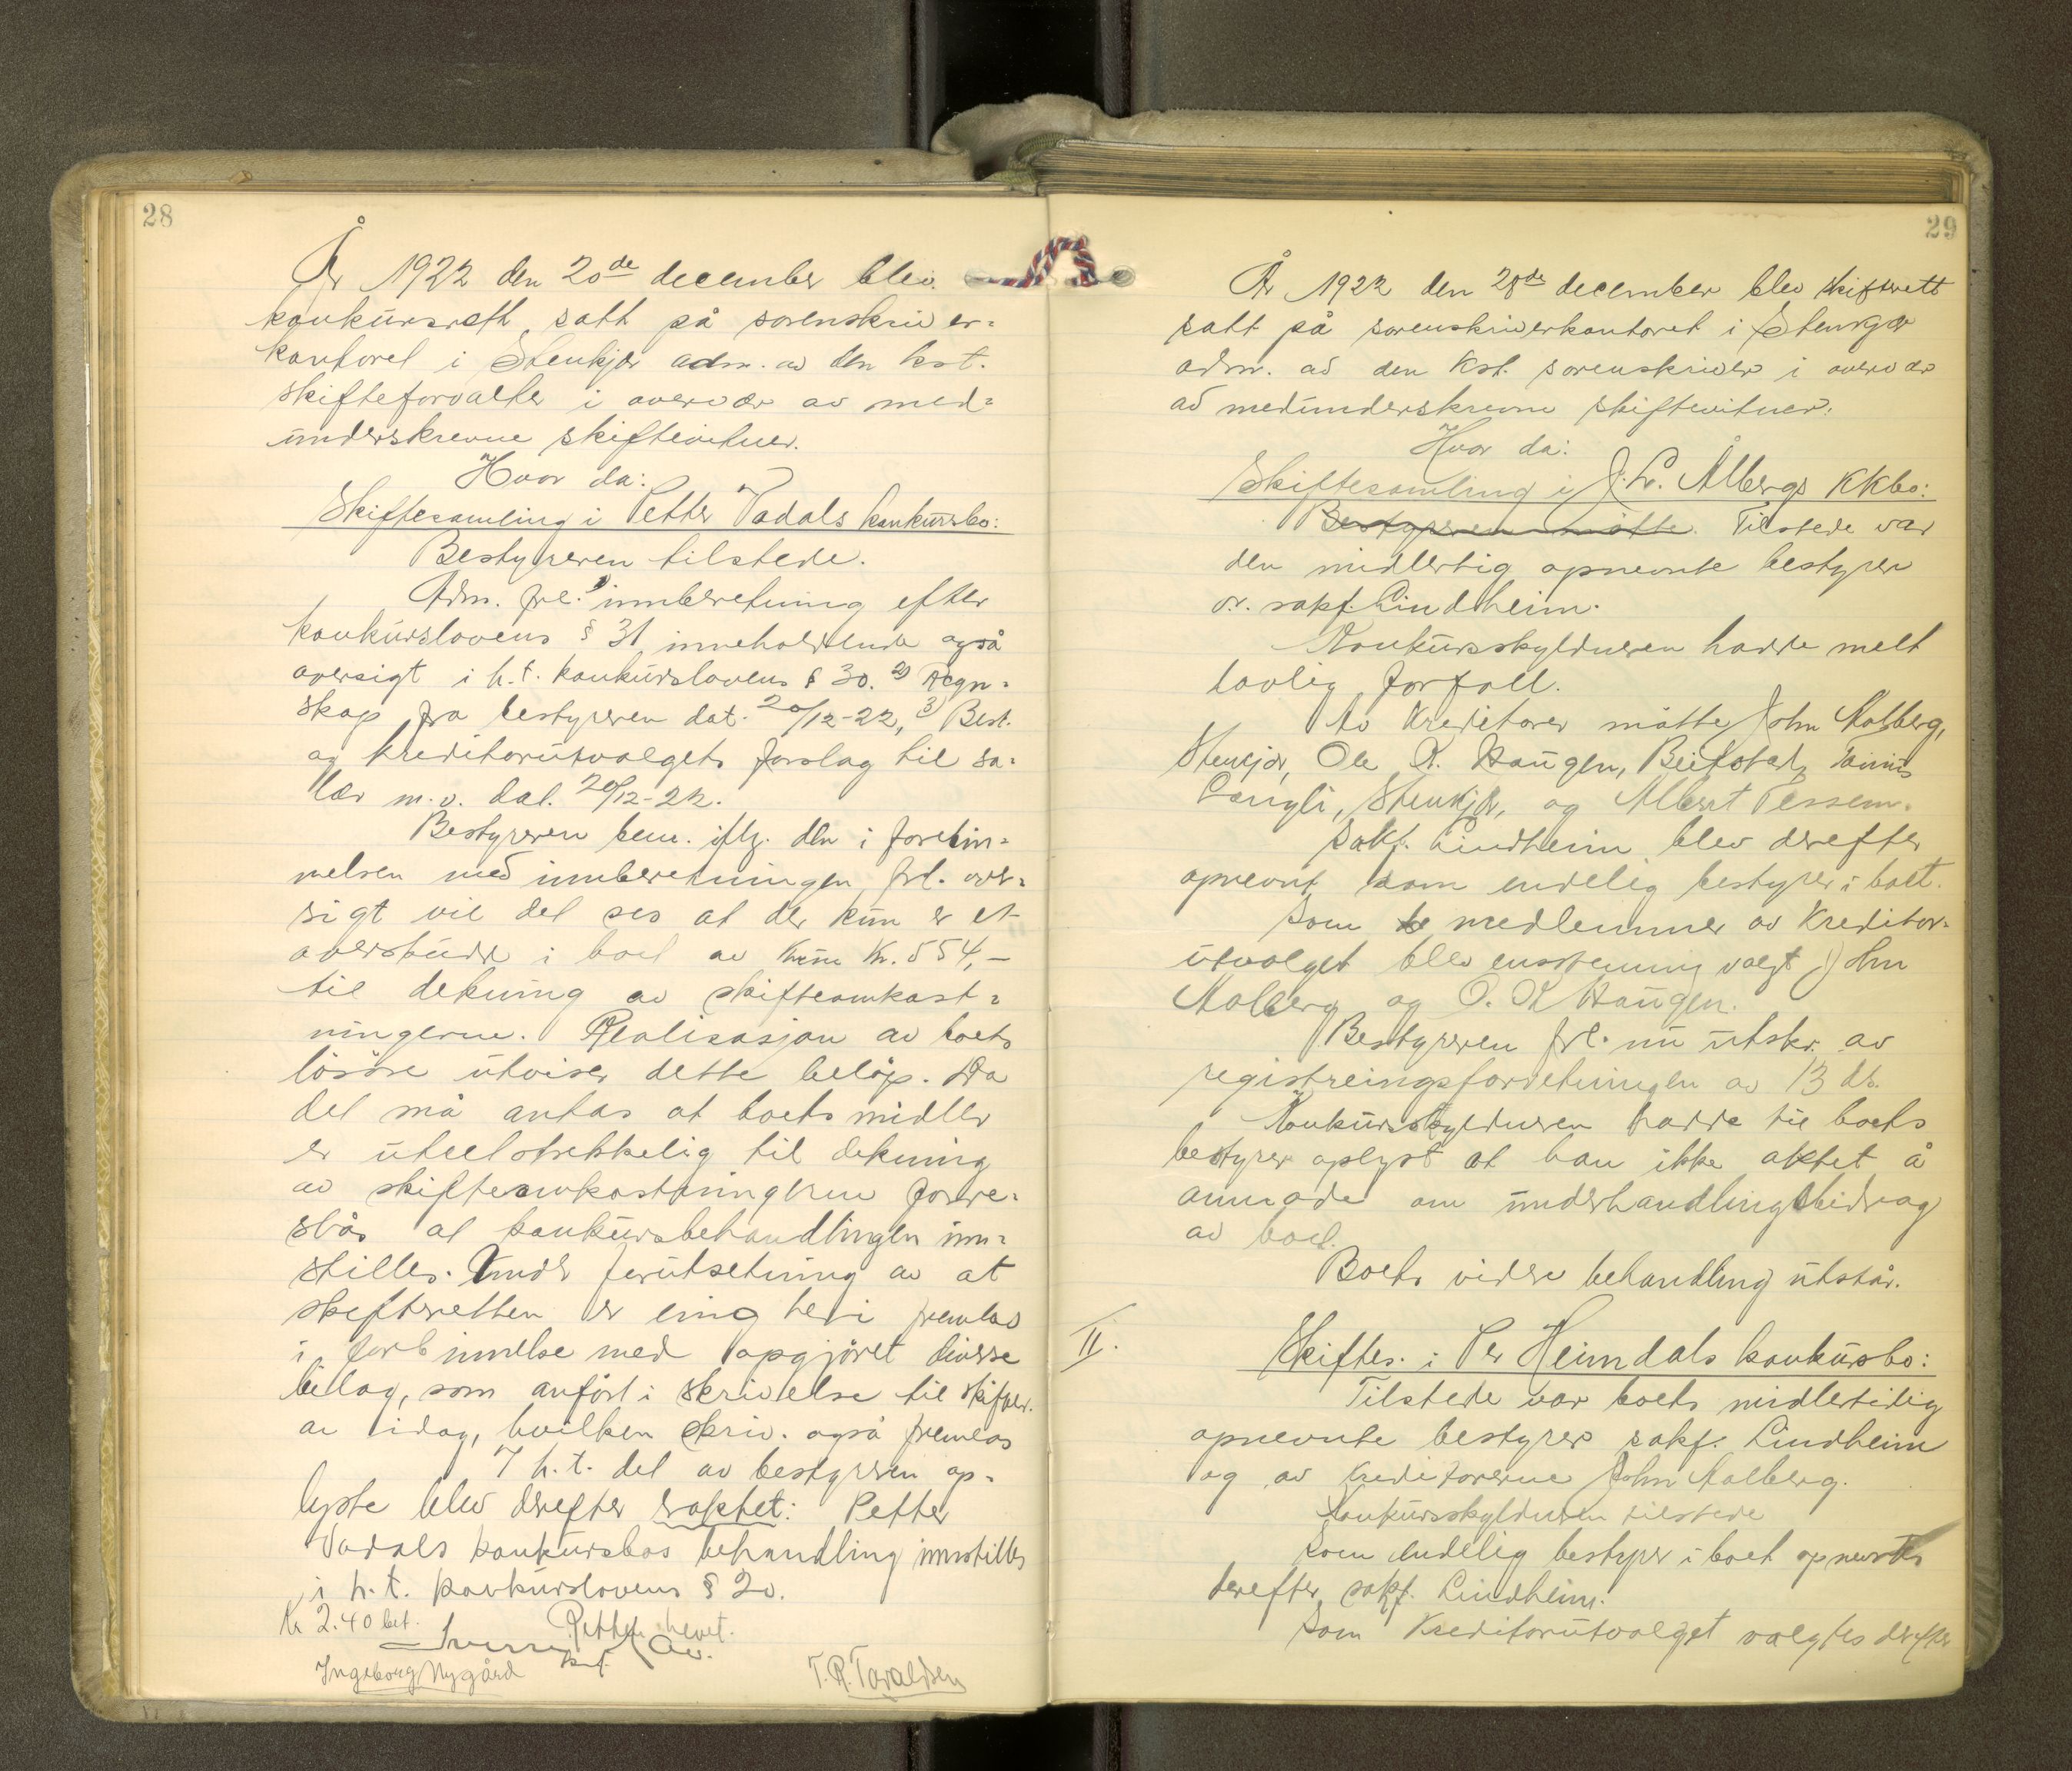 28
År 1922 den 20de december blev
konkursrett satt på sorenskriver=
kontoret i Stenkjær adm. av den kst.
skifteforvalter i overvær av med=
underskrevne skiftevitner.
Hvor da:
Skiftesamling i Petter Vadals konkursbo:
Bestyreren tilstede.
Adm. frl. 1) innberetning efter
konkurslovens § 31 inneholdende også
oversigt i h.t. konkurslovens § 30. 2) Regn=
skap fra bestyreren dat. 20/12-22, 3) Best.
og kreditorutvalgets forslag til sa=
lær m.v. dat. 20/12-22.
Bestyreren bem. iflg. den i forbin=
nelsen med innberetningen frl. over=
sigt vil det ses at der kun er et
overskudd i boet av kun kr. 554,-
til dekning av skifteomkost=
ningerne. Realisasjon av boets
løsøre utviser dette beløp. Da
det må antas at boets midler
er utilstrekkelig til dekning
av skifteomkostningerne fore=
slås at konkursbehandlingen inn=
stilles. Under forutsetning av at
skifteretten er enig heri fremlas
i forbinnelse med opgjøret diverse
bilag, som anført i skrivelse til skifter.
av idag, hvilken skriv. også fremlas
I h.t. det av bestyreren op=
lyste blev derefter vaktet: Petter
Vadals konkursbos behandling innstilles
i h.t. konkurslovens § 20.
Kr 2.40 bet. Retten hevet.
kst.
Ingeborg Nygård T. R. Taraldsen
29
År 1922 den 28de december blev skifterett
satt på sorenskriverkontoret i Stenkjær
adm. av den kst. sorenskriver i overvær
av medunderskrevne skiftevitner.
Hvor da:
Skiftesamling i J. L. Ålbergs kkbo:
Bestyreren møtte. Tilstede var
den midlertig opnevnte bestyrer
o.r. sakf. Lindheim.
Konkursskyldneren hadde melt
lovlig forfall.
Av kreditorer møtte John Aalberg,
Stenkjær, Ole K. Haugen, Beitstad,
Langli, Stenkjær, og Albert Tessem.
Sakf. Lindheim blev derefter
opnevnt som endelig bestyrer i boet.
Som medlemmer av kreditor=
utvalget blev enstemmig valgt John
Aalberg og O. K Haugen.
Bestyreren frl. nu utskr. av
registreingsforretningen av 13 ds.
Konkursskyldneren hadde til boets
bestyrer oplyst at han ikke aktet å
anmode om underhandlingsbidrag
av boet.
Boets videre behandling utstår.
II.
Skiftes. i Per Heimdals konkursbo:
Tilstede var boets midlertidig
opnevnte bestyrer sakf. Lindheim
og av kreditorerne John Aalberg.
Konkursskyldneren tilstede
Som endelig bestyrer i boet opnevntes
derefter sakf. Lindheim.
Som kreditorutvalget valgtes derefter